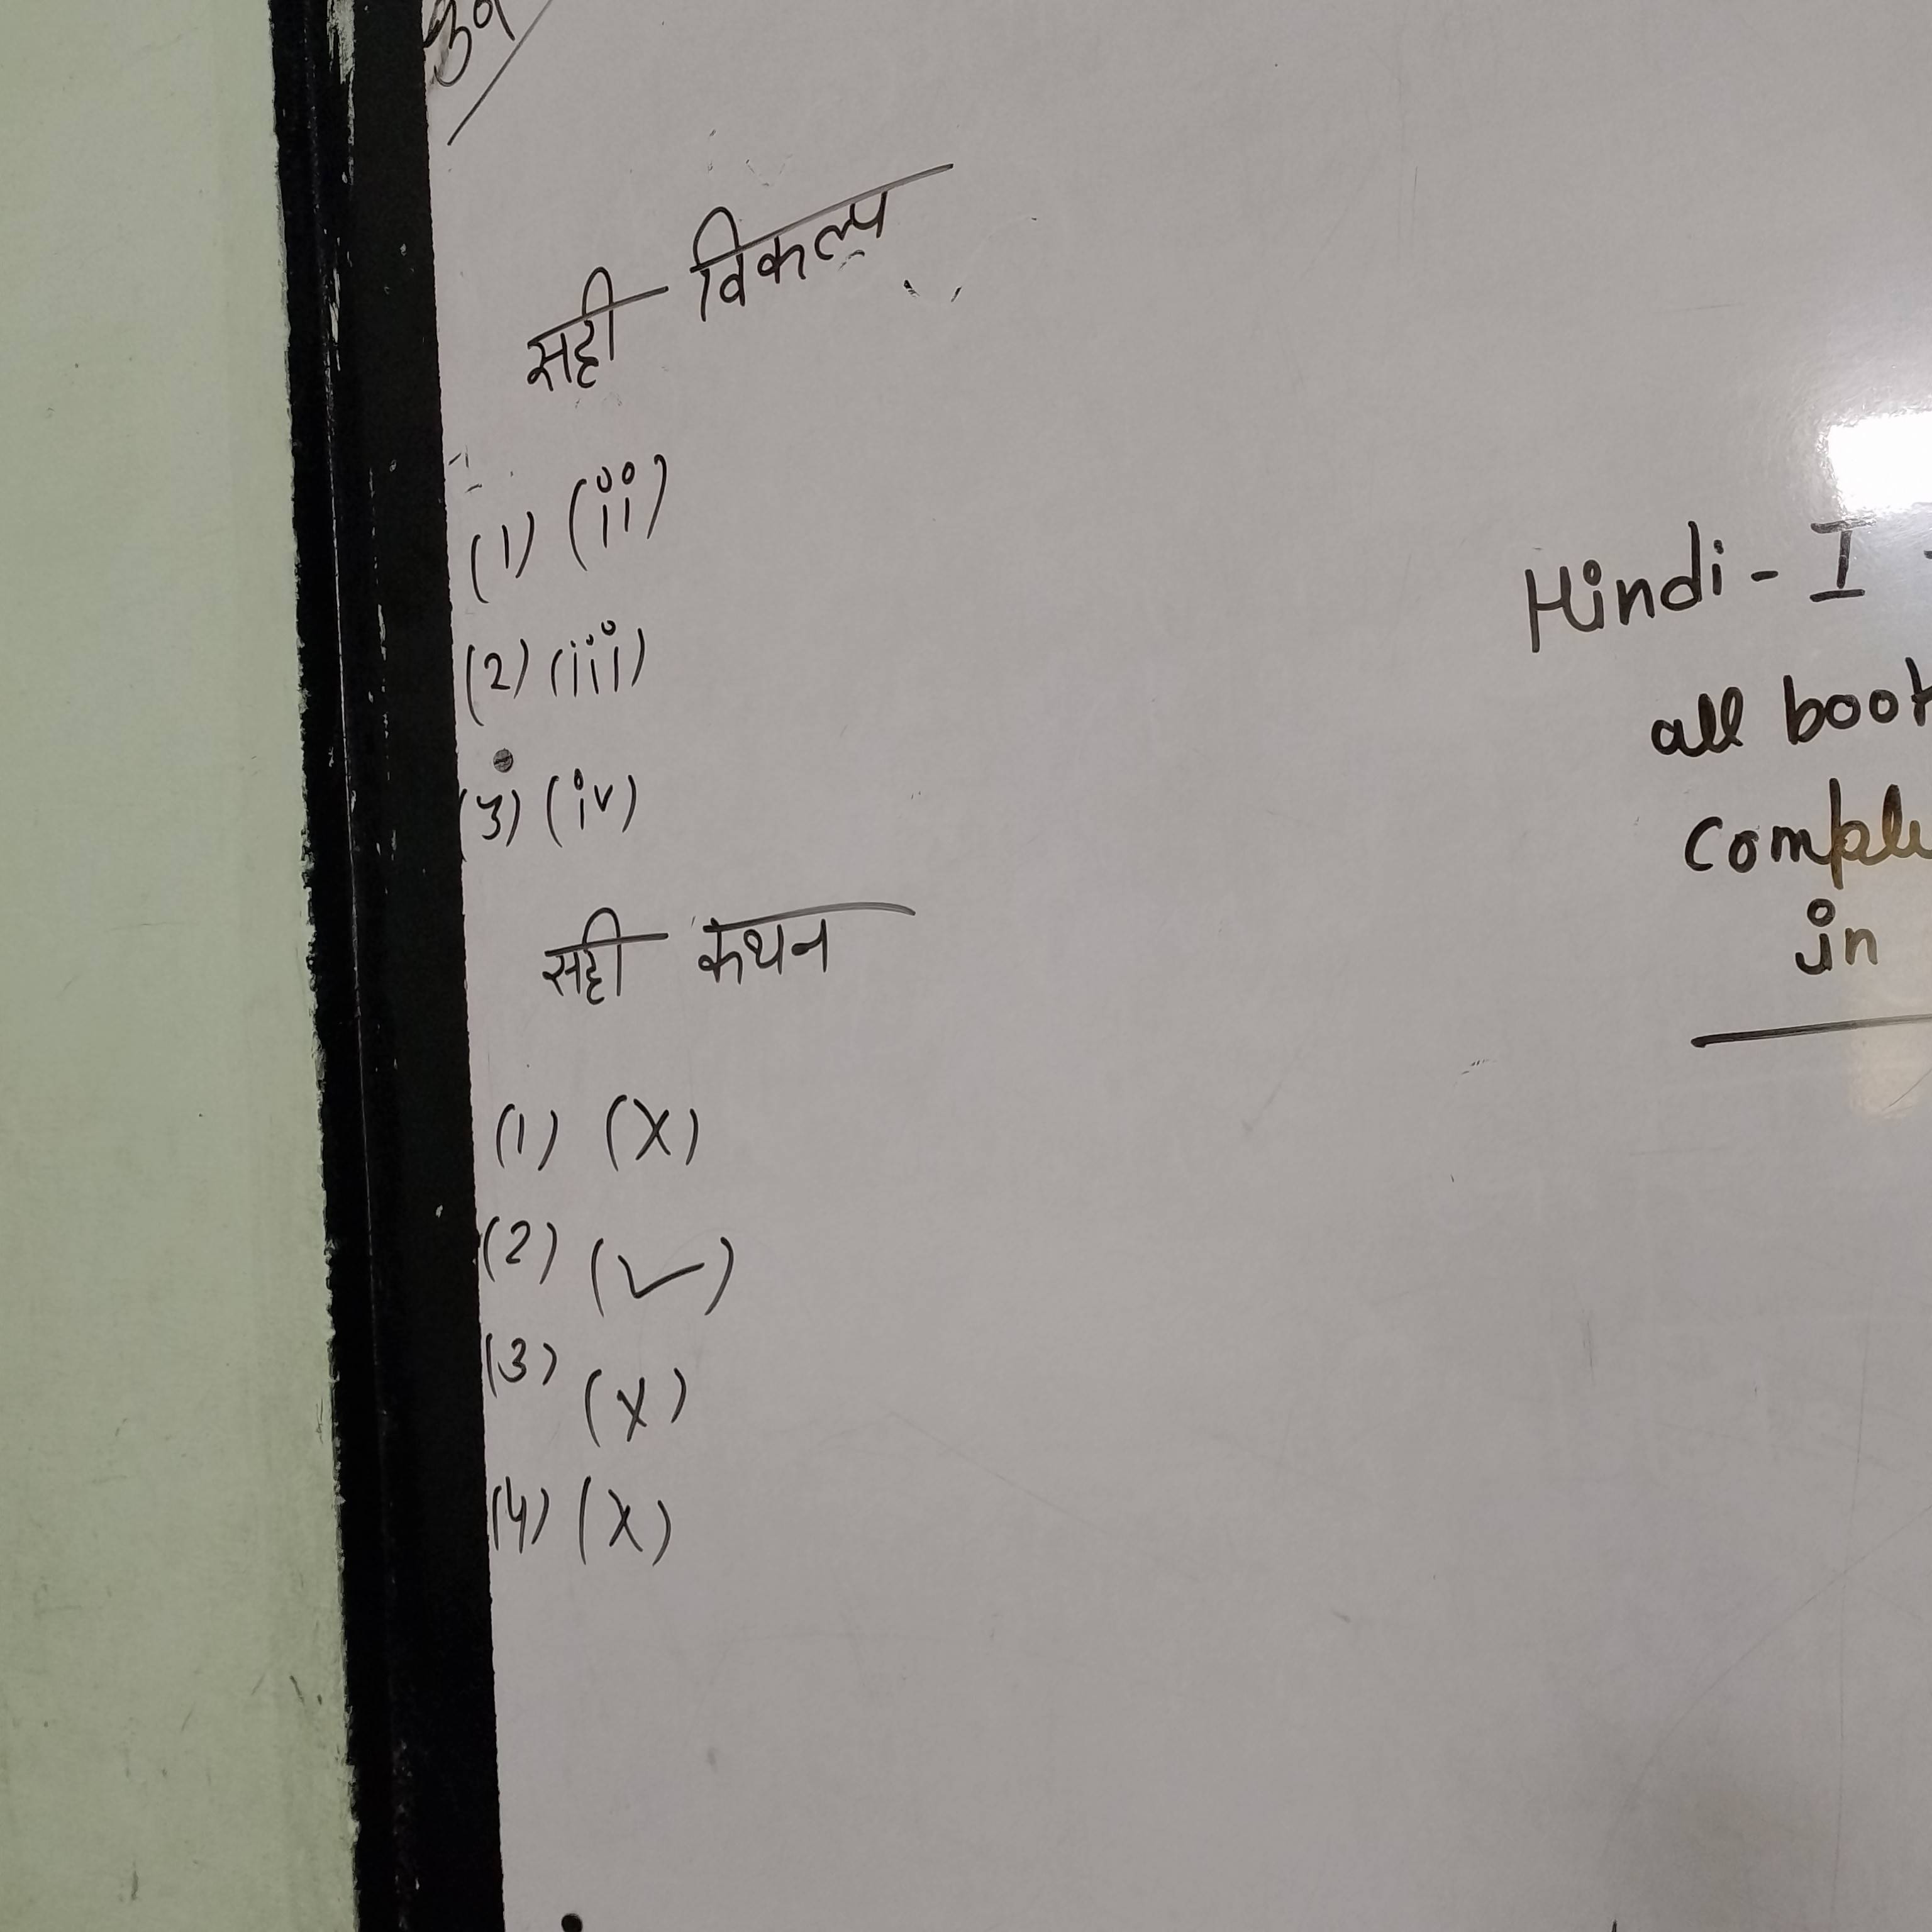 सही विकल्प
(1) (ii)
(2) (iii)
(3) (iv)
सही कथन
(1) (X)
(2) (✓)
(3) (X)
(4) (X)
Hindi - I
all
in